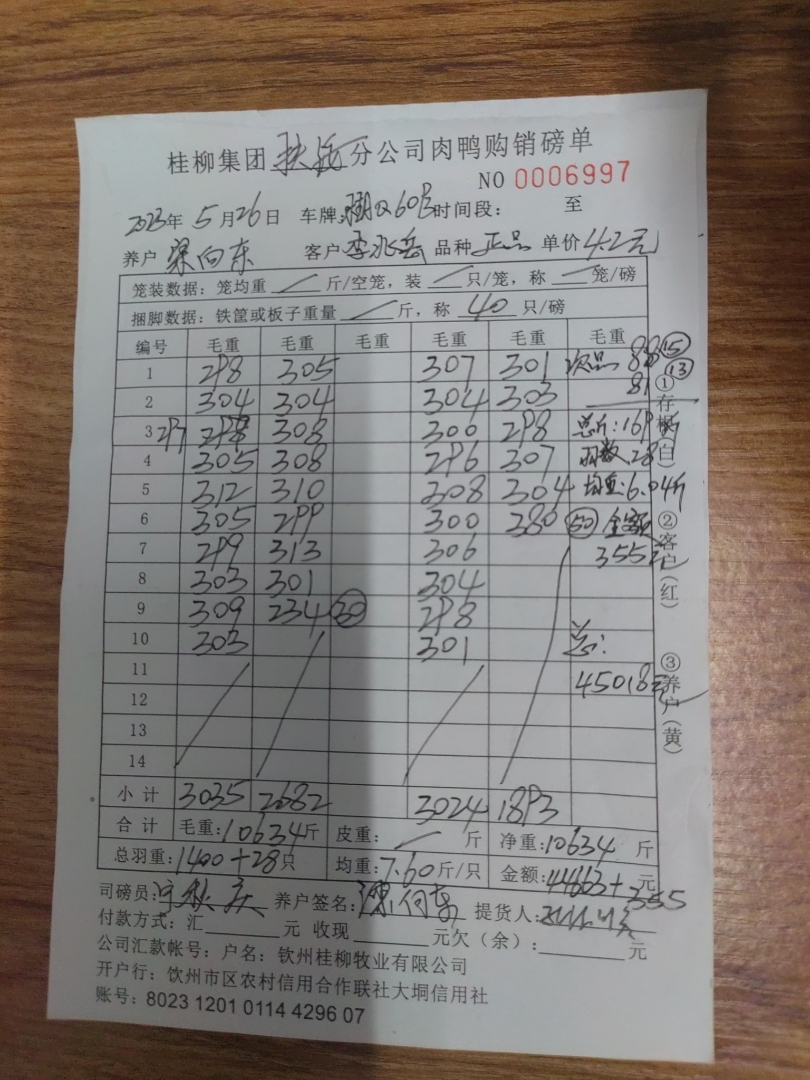 桂柳集团 分公司肉鸭购销磅单
NO 0006997
2023年 5月26日 车牌: 时间段: 至
养户 梁向东 客户 李兆岳 品种 正品 单价 4.2元
笼装数据：笼均重 / 斤/空笼，装 / 只/笼，称 / 笼/磅
捆脚数据：铁筐或板子重量 / 斤，称 40 只/磅
编号 毛重 毛重 毛重 毛重 毛重 毛重
1 298 305 307 301 次品 88 ⑮
2 304 304 304 303 81 ⑬
3 297 308 300 298 总斤:169斤
4 305 308 296 307 羽数 28
5 312 310 308 304 均重:6.04斤
6 305 299 300 280 ㊿ 金额
7 299 313 306 355元
8 303 301 304
9 309 234 ㉚ 298
10 303 301 总:
11 45018元
12
13
14
小计 3035 2682 3024 1893
合计 毛重:10634斤 皮重: / 斤 净重:10634 斤
总羽重:1400+28只 均重:7.60斤/只 金额:44663+355元
司磅员: 养户签名:梁向东 提货人:
付款方式：汇 元 收现 元欠（余）: 元
公司汇款帐号：户名：钦州桂柳牧业有限公司
开户行：钦州市区农村信用合作联社大垌信用社
账号：8023 1201 0114 4296 07
①存根（白）
②客户（红）
③养户（黄）